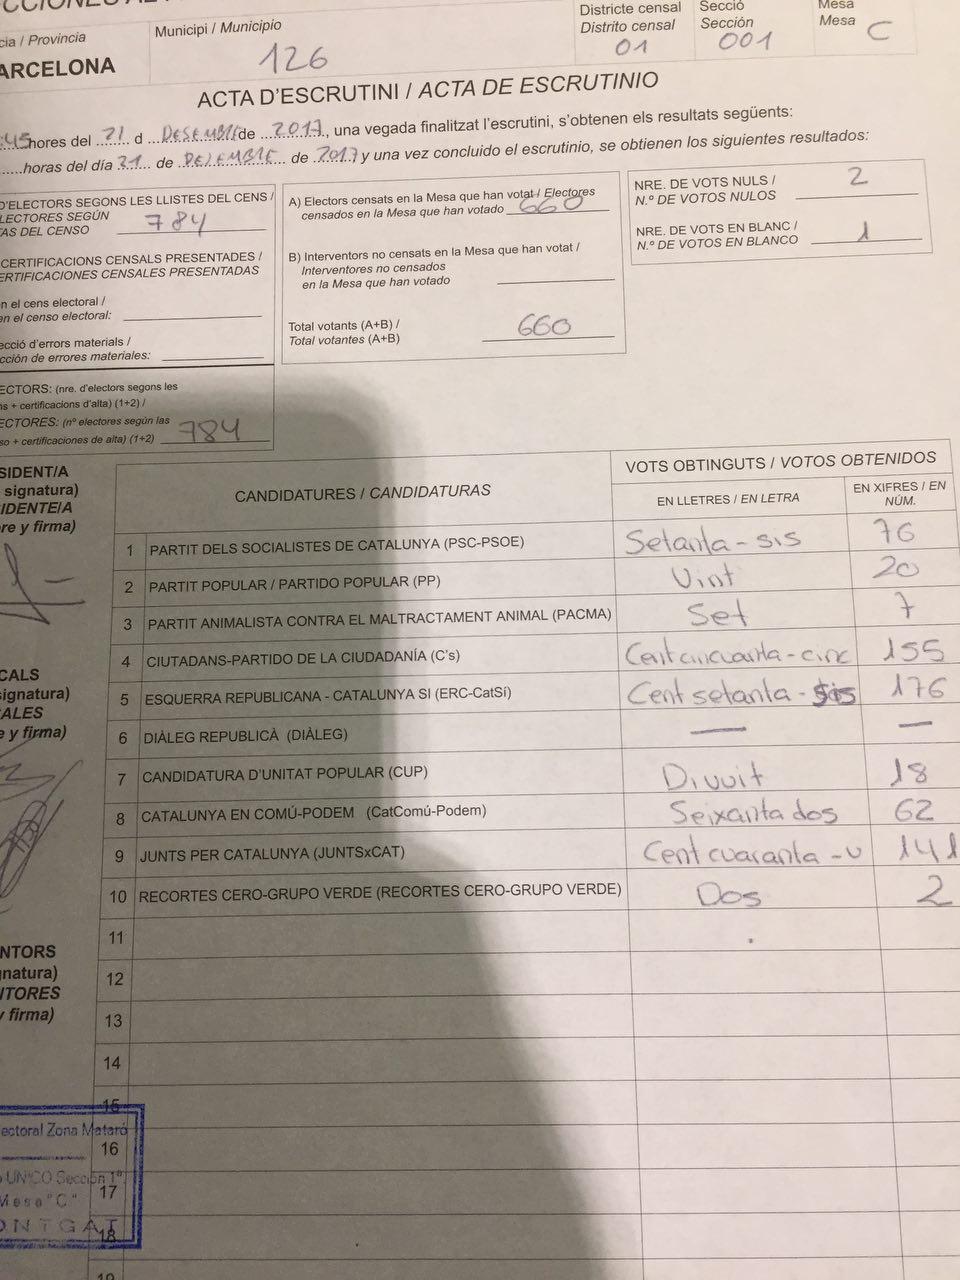 cia / Provincia
ARCELONA
Municipi / Municipio
126
Districte censal
Distrito censal
01
Secció
Sección
001
Mesa
Mesa
C
ACTA D'ESCRUTINI / ACTA DE ESCRUTINIO
:45 hores del 21 d DESEMBRE de 2017, una vegada finalitzat l'escrutini, s'obtenen els resultats següents:
horas del día 21 de DEZEMBRE de 2017 y una vez concluido el escrutinio, se obtienen los siguientes resultados:
D'ELECTORS SEGONS LES LLISTES DEL CENS /
LECTORES SEGÚN
TAS DEL CENSO 784
CERTIFICACIONS CENSALS PRESENTADES /
ERTIFICACIONES CENSALES PRESENTADAS
n el cens electoral /
en el censo electoral:
ecció d'errors materials /
cción de errores materiales:
ECTORS: (nre. d'electors segons les
ns + certificacions d'alta) (1+2) /
ECTORES: (nº electores según las
so + certificaciones de alta) (1+2) 784
A) Electors censats en la Mesa que han votat / Electores
censados en la Mesa que han votado 660
B) Interventors no censats en la Mesa que han votat /
Interventores no censados
en la Mesa que han votado
Total votants (A+B) /
Total votantes (A+B) 660
NRE. DE VOTS NULS /
N.º DE VOTOS NULOS 2
NRE. DE VOTS EN BLANC /
N.º DE VOTOS EN BLANCO 1
SIDENT/A
signatura)
IDENTE/A
re y firma)
CALS
signatura)
ALES
e y firma)
NTORS
gnatura)
ITORES
y firma)
CANDIDATURES / CANDIDATURAS
VOTS OBTINGUTS / VOTOS OBTENIDOS
EN LLETRES / EN LETRA
EN XIFRES / EN
NÚM.
1 PARTIT DELS SOCIALISTES DE CATALUNYA (PSC-PSOE) Setanta-sis 76
2 PARTIT POPULAR / PARTIDO POPULAR (PP) Vint 20
3 PARTIT ANIMALISTA CONTRA EL MALTRACTAMENT ANIMAL (PACMA) Set 7
4 CIUTADANS-PARTIDO DE LA CIUDADANÍA (C's) Cent cincuanta-cinc 155
5 ESQUERRA REPUBLICANA - CATALUNYA SI (ERC-CatSí) Cent setanta-sis 176
6 DIÀLEG REPUBLICÀ (DIÀLEG) — —
7 CANDIDATURA D'UNITAT POPULAR (CUP) Divuit 18
8 CATALUNYA EN COMÚ-PODEM (CatComú-Podem) Seixanta dos 62
9 JUNTS PER CATALUNYA (JUNTSxCAT) Cent cuaranta-u 141
10 RECORTES CERO-GRUPO VERDE (RECORTES CERO-GRUPO VERDE) Dos 2
11
12
13
14
15
16
17
18
19
ectoral Zona Mataró
UNICO Sección 1ª
Mesa "C"
ONTGAT